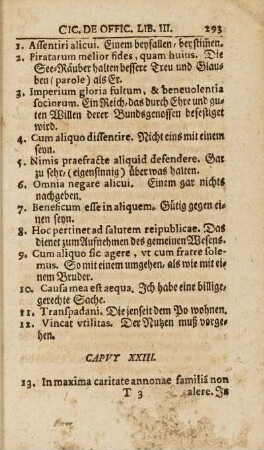 CIC. DE OFFIC. LIB. III. 293
1. Assentiri alicui. Einem beyfallen/ beystim̃en.
2. Piratarum melior fides, quam huius. Die
See-Räuber halten bessere Treu und Glau-
ben (parole) als Er.
3. Imperium gloria fultum, & beneuolentia
sociorum. Ein Reich/ das durch Ehre und gu-
ten Willen derer Bundsgenossen befestiget
wird.
4. Cum aliquo dissentire. Nicht eins mit einem
seyn.
5. Nimis praefracte aliquid defendere. Gar
zu sehr/ (eigensinnig) über was halten.
6. Omnia negare alicui. Einem gar nichts
nachgeben.
7. Beneficum esse in aliquem. Gütig gegen ei-
nen seyn.
8. Hoc pertinet ad salutem reipublicae. Das
dienet zum Aufnehmen des gemeinen Wesens.
9. Cum aliquo sic agere, vt cum fratre sole-
mus. So mit einem umgehen/ als wie mit ei-
nem Bruder.
10. Causa mea est aequa. Ich habe eine billige-
gerechte Sache.
11. Transpadani. Die jenseit dem Po wohnen.
12. Vincat vtilitas. Der Nutzen muß vorge-
hen.
CAPVT XXIII.
13. In maxima caritate annonae familiã non
T 3 alere. In